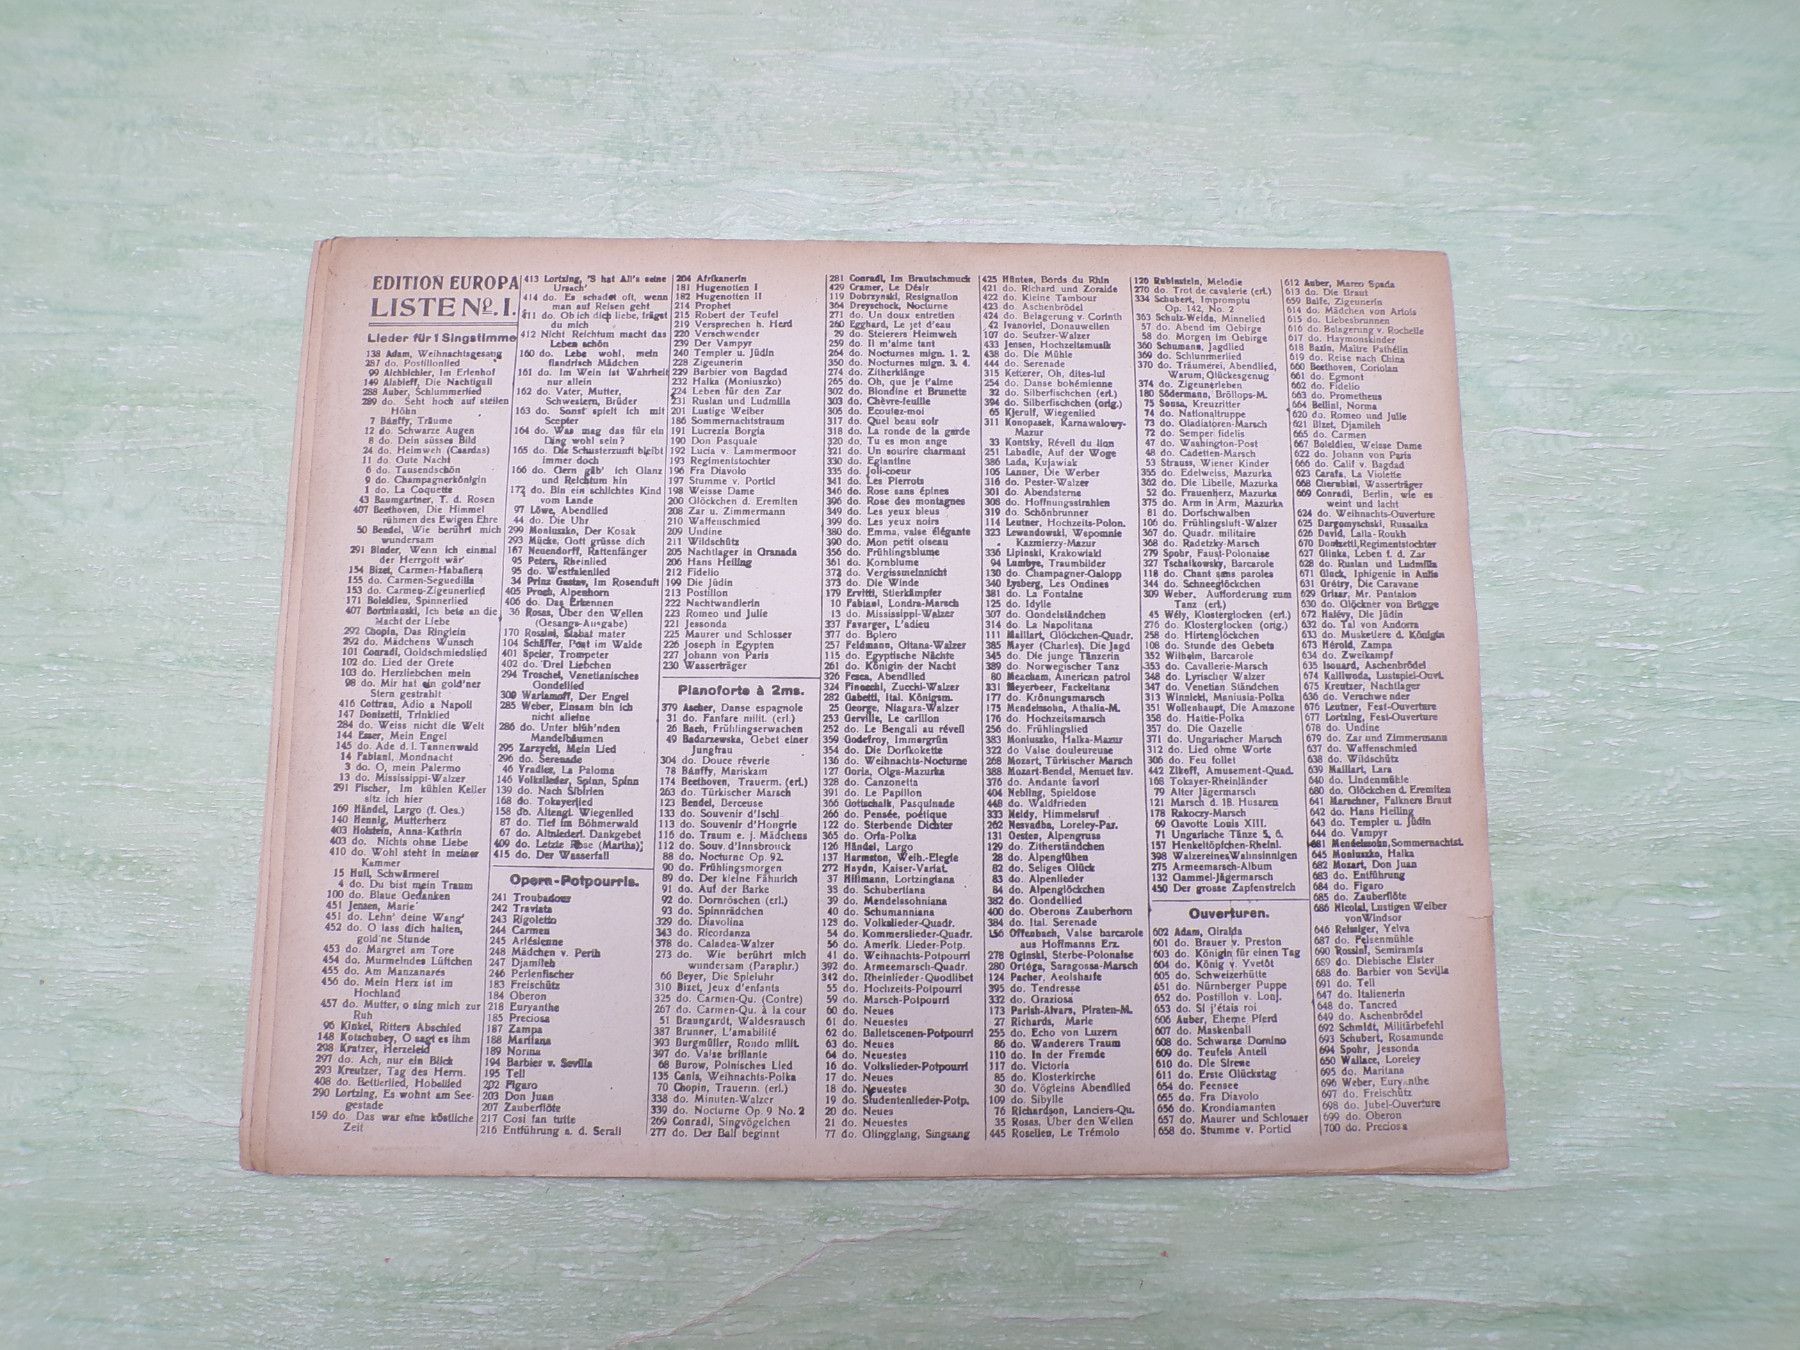 EDITION EUROPA
LISTE No. I.
Lieder für 1 Singstimme
138 Adam, Weihnachtsgesang
287 do. Postillonlied
99 Aichbichler, Im Erlenhof
149 Alabieff, Die Nachtigall
288 Auber, Schlummerlied
289 do. Seht hoch auf steilen
Höhn
7 Bánffy, Träume
12 do. Schwarze Augen
8 do. Dein süsses Bild
24 do. Heimweh (Csardas)
11 do. Gute Nacht
6 do. Tausendschön
9 do. Champagnerkönigin
1 do. La Coquette
43 Baumgartner, T. d. Rosen
407 Beethoven, Die Himmel
rühmen des Ewigen Ehre
50 Bendel, Wie berührt mich
wundersam
291 Binder, Wenn ich einmal
der Herrgott wär'
154 Bizet, Carmen-Habañera
155 do. Carmen-Seguedilla
153 do. Carmen-Zigeunerlied
171 Boieldieu, Spinnerlied
407 Bortnianski, Ich bete an die
Macht der Liebe
292 Chopin, Das Ringlein
292 do. Mädchens Wunsch
101 Conradi, Goldschmiedslied
102 do. Lied der Grete
103 do. Herzliebchen mein
98 do. Mir hat ein gold'ner
Stern gestrahlt
416 Cottrau, Adio a Napoli
147 Donizetti, Trinklied
284 do. Weiss nicht die Welt
144 Esser, Mein Engel
145 do. Ade d. l. Tannenwald
14 Fabiani, Mondnacht
3 do. O, mein Palermo
13 do. Mississippi-Walzer
291 Fischer, Im kühlen Keller
sitz ich hier
169 Händel, Largo (f. Ges.)
140 Hennig, Mutterherz
403 Holstein, Anna-Kathrin
403 do. Nichts ohne Liebe
410 do. Wohl steht in meiner
Kammer
15 Hull, Schwärmerei
4 do. Du bist mein Traum
100 do. Blaue Gedanken
451 Jensen, Marie
451 do. Lehn' deine Wang'
452 do. O lass dich halten,
gold'ne Stunde
453 do. Margret am Tore
454 do. Murmelndes Lüftchen
455 do. Am Manzanares
456 do. Mein Herz ist im
Hochland
457 do. Mutter, o sing mich zur
Ruh
96 Kinkel, Ritters Abschied
148 Kotschubey, O sagt es ihm
298 Kratzer, Herzeleid
297 do. Ach, nur ein Blick
293 Kreutzer, Tag des Herrn.
408 do. Bettlerlied, Hobellied
290 Lortzing, Es wohnt am See-
gestade
159 do. Das war eine köstliche
Zeit
413 Lortzing, 'S hat All's seine
Ursach'
414 do. Es schadet oft, wenn
man auf Reisen geht
411 do. Ob ich dich liebe, frägst
du mich
412 Nicht Reichtum macht das
Leben schön
160 do. Lebe wohl, mein
flandrisch Mädchen
161 do. Im Wein ist Wahrheit
nur allein
162 do. Vater, Mutter,
Schwestern, Brüder
163 do. Sonst spielt ich mit
Scepter
164 do. Was mag das für ein
Ding wohl sein?
165 do. Die Schusterzunft bleibt
immer doch
166 do. Gern gäb' ich Glanz
und Reichtum hin
172 do. Bin ein schlichtes Kind
vom Lande
97 Löwe, Abendlied
44 do. Die Uhr
299 Moniuszko, Der Kosak
293 Mücke, Gott grüsse dich
167 Neuendorff, Rattenfänger
95 Peters, Rheinlied
95 do. Westfalenlied
34 Prinz Gustav, Im Rosenduft
405 Proch, Alpenhorn
406 do. Das Erkennen
36 Rosas, Über den Wellen
(Gesangs-Ausgabe)
170 Rossini, Stabat mater
104 Schäffer, Post im Walde
401 Speier, Trompeter
402 do. Drei Liebchen
294 Troschel, Venetianisches
Gondellied
300 Warlamoff, Der Engel
285 Weber, Einsam bin ich
nicht alleine
286 do. Unter blüh'nden
Mandelbäumen
295 Zarzycki, Mein Lied
296 do. Serenade
46 Yradier, La Paloma
146 Volkslieder, Spinn, Spinn
139 do. Nach Sibirien
168 do. Tokayerlied
158 do. Altengl. Wiegenlied
87 do. Tief im Böhmerwald
67 do. Altniederl. Dankgebet
409 do. Letzte Rose (Martha)
415 do. Der Wasserfall
Opern-Potpourris.
241 Troubadour
242 Traviata
243 Rigoletto
244 Carmen
245 Arlésienne
248 Mädchen v. Perth
247 Djamileh
246 Perlenfischer
183 Freischütz
184 Oberon
218 Euryanthe
185 Preciosa
187 Zampa
188 Maritana
189 Norma
194 Barbier v. Sevilla
195 Tell
202 Figaro
203 Don Juan
207 Zauberflöte
217 Cosi fan tutte
216 Entführung a. d. Serail
204 Afrikanerin
181 Hugenotten I
182 Hugenotten II
214 Prophet
215 Robert der Teufel
219 Versprechen h. Herd
220 Verschwender
239 Der Vampyr
240 Templer u. Jüdin
228 Zigeunerin
229 Barbier von Bagdad
232 Halka (Moniuszko)
224 Leben für den Zar
231 Ruslan und Ludmilla
201 Lustige Weiber
186 Sommernachtstraum
191 Lucrezia Borgia
190 Don Pasquale
192 Lucia v. Lammermoor
193 Regimentstochter
196 Fra Diavolo
197 Stumme v. Portici
198 Weisse Dame
200 Glöckchen d. Eremiten
208 Zar u. Zimmermann
210 Waffenschmied
209 Undine
211 Wildschütz
205 Nachtlager in Granada
206 Hans Heiling
212 Fidelio
199 Die Jüdin
213 Postillon
222 Nachtwandlerin
223 Romeo und Julie
221 Jessonda
225 Maurer und Schlosser
226 Joseph in Egypten
227 Johann von Paris
230 Wasserträger
Pianoforte à 2ms.
379 Ascher, Danse espagnole
31 do. Fanfare milit. (erl.)
26 Bach, Frühlingserwachen
49 Badarzewska, Gebet einer
Jungfrau
304 do. Douce rêverie
78 Bánffy, Mariskam
174 Beethoven, Trauerm. (erl.)
263 do. Türkischer Marsch
123 Bendel, Berceuse
133 do. Souvenir d'Ischl
113 do. Souvenir d'Hongrie
116 do. Traum e. j. Mädchens
112 do. Souv. d'Innsbrouck
88 do. Nocturne Op. 92.
90 do. Frühlingsmorgen
89 do. Der kleine Fähnrich
91 do. Auf der Barke
92 do. Dornröschen (erl.)
93 do. Spinnrädchen
329 do. Diavolina
343 do. Ricordanza
378 do. Caladea-Walzer
273 do. Wie berührt mich
wundersam (Paraphr.)
66 Beyer, Die Spieluhr
310 Bizet, Jeux d'enfants
325 do. Carmen-Qu. (Contre)
267 do. Carmen-Qu. à la cour
51 Braungardt, Waldesrausch
387 Brunner, L'amabilité
393 Burgmüller, Rondo milit.
397 do. Valse brillante
68 Burow, Polnisches Lied
135 Canis, Weihnachts-Polka
70 Chopin, Trauerm. (erl.)
338 do. Minuten-Walzer
339 do. Nocturne Op. 9 No. 2
269 Conradi, Singvögelchen
277 do. Der Ball beginnt
281 Conradi, Im Brautschmuck
429 Cramer, Le Désir
119 Dobrzynski, Resignation
364 Dreyschock, Nocturne
271 do. Un doux entretien
260 Egghard, Le jet d'eau
29 do. Steierers Heimweh
259 do. Il m'aime tant
264 do. Nocturnes mign. 1. 2.
350 do. Nocturnes mign. 3. 4.
274 do. Zitherklänge
265 do. Oh, que je t'aime
302 do. Blondine et Brunette
303 do. Chèvre-feuille
305 do. Ecoutez-moi
317 do. Quel beau soir
318 do. La ronde de la garde
320 do. Tu es mon ange
321 do. Un sourire charmant
330 do. Eglantine
335 do. Joli-coeur
341 do. Les Pierrots
346 do. Rose sans épines
396 do. Rose des montagnes
349 do. Les yeux bleus
399 do. Les yeux noirs
380 do. Emma, valse élégante
390 do. Mon petit oiseau
356 do. Frühlingsblume
361 do. Kornblume
372 do. Vergissmeinnicht
373 do. Die Winde
179 Ervitti, Stierkämpfer
10 Fabiani, Londra-Marsch
13 do. Mississippi-Walzer
337 Favarger, L'adieu
377 do. Bolero
257 Feldmann, Gitana-Walzer
115 do. Egyptische Nächte
261 do. Königin der Nacht
326 Fesca, Abendlied
324 Finocchi, Zucchi-Walzer
282 Gabetti, Ital. Königsm.
25 George, Niagara-Walzer
253 Gerville, Le carillon
252 do. Le Bengali au réveil
359 Godefroy, Immergrün
354 do. Die Dorfkokette
136 do. Weihnachts-Nocturne
127 Goria, Olga-Mazurka
328 do. Canzonetta
391 do. Le Papillon
366 Gottschalk, Pasquinade
266 do. Pensée, poétique
122 do. Sterbende Dichter
365 do. Orfa-Polka
126 Händel, Largo
137 Harmston, Weih.-Elegie
272 Haydn, Kaiser-Variat.
37 Hillmann, Lortzingiana
38 do. Schubertiana
39 do. Mendelssohniana
40 do. Schumanniana
128 do. Volkslieder-Quadr.
54 do. Kommerslieder-Quadr.
56 do. Amerik. Lieder-Potp.
41 do. Weihnachts-Potpourri
392 do. Armeemarsch-Quadr.
342 do. Rheinlieder-Quodlibet
55 do. Hochzeits-Potpourri
59 do. Marsch-Potpourri
60 do. Neues
61 do. Neuestes
62 do. Balletscenen-Potpourri
63 do. Neues
64 do. Neuestes
16 do. Volkslieder-Potpourri
17 do. Neues
18 do. Neuestes
19 do. Studentenlieder-Potp.
20 do. Neues
21 do. Neuestes
77 do. Glingglang, Singsang
425 Hünten, Bords du Rhin
421 do. Richard und Zoraide
422 do. Kleine Tambour
423 do. Aschenbrödel
424 do. Belagerung v. Corinth
42 Ivanovici, Donauwellen
107 do. Seufzer-Walzer
433 Jensen, Hochzeitsmusik
438 do. Die Mühle
444 do. Serenade
315 Ketterer, Oh, dites-lui
254 do. Danse bohémienne
32 do. Silberfischchen (erl.)
394 do. Silberfischchen (orig.)
65 Kjerulf, Wiegenlied
311 Konopasek, Karnawalowy-
Mazur
33 Kontsky, Réveil du lion
251 Labadie, Auf der Woge
386 Lada, Kujawiak
105 Lanner, Die Werber
316 do. Pester-Walzer
301 do. Abendsterne
308 do. Hoffnungsstrahlen
319 do. Schönbrunner
114 Leutner, Hochzeits-Polon.
323 Lewandowski, Wspomnie
Kazmierzy-Mazur
336 Lipinski, Krakowiaki
94 Lumbye, Traumbilder
130 do. Champagner-Galopp
340 Lysberg, Les Ondines
381 do. La Fontaine
125 do. Idylle
307 do. Gondelständchen
314 do. La Napolitana
111 Maillart, Glöckchen-Quadr.
385 Mayer (Charles). Die Jagd
345 do. Die junge Tänzerin
389 do. Norwegischer Tanz
80 Meacham, American patrol
331 Meyerbeer, Fackeltanz
177 do. Krönungsmarsch
175 Mendelssohn, Athalia-M.
176 do. Hochzeitsmarsch
256 do. Frühlingslied
383 Moniuszko, Halka-Mazur
322 do Valse douleureuse
268 Mozart, Türkischer Marsch
388 Mozart-Bendel, Menuet fav.
376 do. Andante favori
404 Nebling, Spieldose
448 do. Waldfrieden
333 Neldy, Himmelsruf
262 Nesvadba, Loreley-Par.
131 Oesten, Alpengruss
129 do. Zitherständchen
28 do. Alpenglühen
82 do. Seliges Glück
83 do. Alpenlieder
84 do. Alpenglöckchen
382 do. Gondellied
400 do. Oberons Zauberhorn
384 do. Ital. Serenade
156 Offenbach, Valse barcarole
aus Hoffmanns Erz.
278 Oginski, Sterbe-Polonaise
280 Ortéga, Saragossa-Marsch
124 Pacher, Aeolsharfe
395 do. Tendresse
332 do. Graziosa
173 Parish-Alvars, Piraten-M.
27 Richards, Marie
255 do. Echo von Luzern
86 do. Wanderers Traum
110 do. In der Fremde
117 do. Victoria
85 do. Klosterkirche
30 do. Vögleins Abendlied
109 do. Sibylle
76 Richardson, Lanciers-Qu.
35 Rosas, Über den Wellen
445 Rosellen, Le Trémolo
120 Rubinstein, Melodie
270 do. Trot de cavalerie (erl.)
334 Schubert, Impromptu
Op. 142, No. 2
363 Schulz-Weida, Minnelied
57 do. Abend im Gebirge
58 do. Morgen im Gebirge
360 Schumann, Jagdlied
369 do. Schlummerlied
370 do. Träumerei, Abendlied,
Warum, Glückesgenug
374 do. Zigeunerleben
180 Södermann, Bröllops-M.
75 Sousa, Kreuzritter
74 do. Nationaltruppe
73 do. Gladiatoren-Marsch
72 do. Semper fidelis
47 do. Washington-Post
48 do. Cadetten-Marsch
53 Strauss, Wiener Kinder
355 do. Edelweiss, Mazurka
362 do. Die Libelle, Mazurka
52 do. Frauenherz, Mazurka
375 do. Arm in Arm, Mazurka
81 do. Dorfschwalben
106 do. Frühlingsluft-Walzer
367 do. Quadr. militaire
368 do. Radetzky-Marsch
279 Spohr, Faust-Polonaise
327 Tschaikowsky, Barcarole
118 do. Chant sans paroles
344 do. Schneeglöckchen
309 Weber, Aufforderung zum
Tanz (erl.)
45 Wély, Klosterglocken (erl.)
276 do. Klosterglocken (orig.)
258 do. Hirtenglöckchen
108 do. Stunde des Gebets
352 Wilhelm, Barcarole
353 do. Cavallerie-Marsch
348 do. Lyrischer Walzer
347 do. Venetian Ständchen
313 Winnicki, Maniusia-Polka
351 Wollenhaupt, Die Amazone
358 do. Hattie-Polka
357 do. Die Gazelle
371 do. Ungarischer Marsch
312 do. Lied ohne Worte
306 do. Feu follet
442 Zikoff, Amusement-Quad.
168 Tokayer-Rheinländer
79 Alter Jägermarsch
121 Marsch d. 18. Husaren
178 Rakoczy-Marsch
69 Gavotte Louis XIII.
71 Ungarische Tänze 5, 6.
157 Henkeltöpfchen-Rheinl.
398 Walzer eines Wahnsinnigen
275 Armeemarsch-Album
132 Gammel-Jägermarsch
450 Der grosse Zapfenstreich
Ouverturen.
602 Adam, Giralda
601 do. Brauer v. Preston
603 do. Königin für einen Tag
604 do. König v. Yvetôt
605 do. Schweizerhütte
651 do. Nürnberger Puppe
652 do. Postillon v. Lonj.
653 do. Si j'étais roi
606 Auber, Eherne Pferd
607 do. Maskenball
608 do. Schwarze Domino
609 do. Teufels Anteil
610 do. Die Sirene
611 do. Erste Glückstag
654 do. Feensee
655 do. Fra Diavolo
656 do. Krondiamanten
657 do. Maurer und Schlosser
658 do. Stumme v. Portici
612 Auber, Marco Spada
613 do. Die Braut
659 Balfe, Zigeunerin
614 do. Mädchen von Artois
615 do. Liebesbrunnen
616 do. Belagerung v. Rochelle
617 do. Haymonskinder
618 Bazin, Maître Pathélin
619 do. Reise nach China
660 Beethoven, Coriolan
661 do. Egmont
662 do. Fidelio
663 do. Prometheus
664 Bellini, Norma
620 do. Romeo und Julie
621 Bizet, Djamileh
665 do. Carmen
667 Boieldieu, Weisse Dame
622 do. Johann von Paris
666 do. Calif v. Bagdad
623 Carafa, La Violette
668 Cherubini, Wasserträger
669 Conradi, Berlin, wie es
weint und lacht
624 do. Weihnachts-Ouverture
625 Dargomyschski, Russalka
626 David, Lalla-Roukh
670 Donizetti, Regimentstochter
627 Glinka, Leben f. d. Zar
628 do. Ruslan und Ludmilla
671 Gluck, Iphigenie in Aulis
631 Grétry, Die Caravane
629 Grisar, Mr. Pantalon
630 do. Glöckner von Brügge
672 Halévy, Die Jüdin
632 do. Tal von Andorra
633 do. Musketiere d. Königin
673 Hérold, Zampa
634 do. Zweikampf
635 Isouard, Aschenbrödel
674 Kalliwoda, Lustspiel-Ouvt.
675 Kreutzer, Nachtlager
636 do. Verschwender
676 Leutner, Fest-Ouverture
677 Lortzing, Fest-Ouverture
678 do. Undine
679 do. Zar und Zimmermann
637 do. Waffenschmied
638 do. Wildschütz
639 Maillart, Lara
640 do. Lindenmühle
680 do. Glöckchen d. Eremiten
641 Marschner, Falkners Braut
642 do. Hans Heiling
643 do. Templer u. Jüdin
644 do. Vampyr
681 Mendelssohn, Sommernachtst.
645 Moniuszko, Halka
682 Mozart, Don Juan
683 do. Entführung
684 do. Figaro
685 do. Zauberflöte
686 Nicolai, Lustigen Weiber
von Windsor
646 Reissiger, Yelva
687 do. Felsenmühle
690 Rossini, Semiramis
689 do. Diebische Elster
688 do. Barbier von Sevilla
691 do. Tell
647 do. Italienerin
648 do. Tancred
649 do. Aschenbrödel
692 Schmidt, Militärbefehl
693 Schubert, Rosamunde
694 Spohr, Jessonda
650 Wallace, Loreley
695 do. Maritana
696 Weber, Euryanthe
697 do. Freischütz
698 do. Jubel-Ouverture
699 do. Oberon
700 do. Preciosa